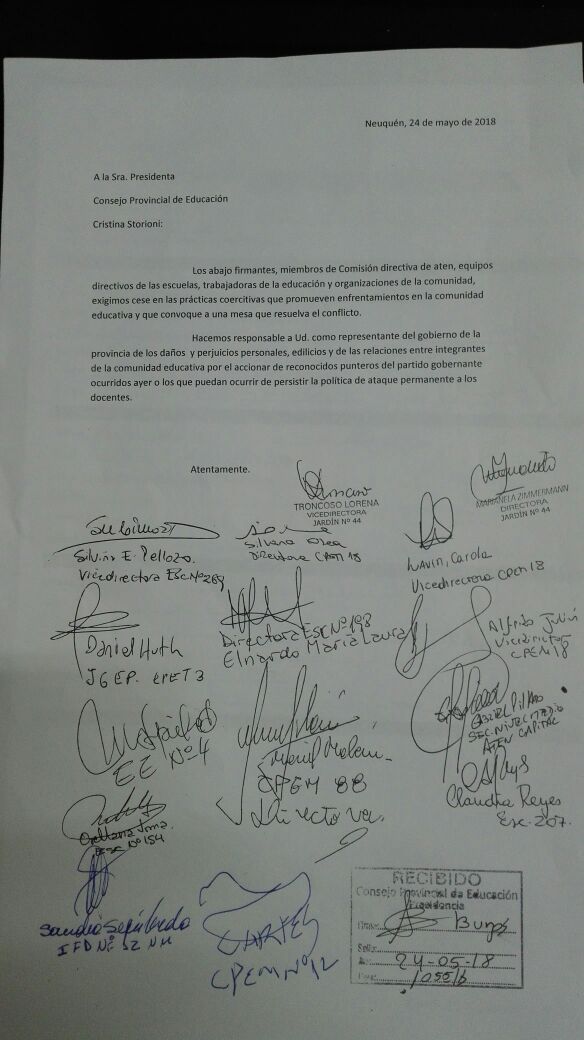 Neuquén, 24 de mayo de 2018
A la Sra. Presidenta
Consejo Provincial de Educación
Cristina Storioni:
Los abajo firmantes, miembros de Comisión directiva de aten, equipos
directivos de las escuelas, trabajadoras de la educación y organizaciones de la comunidad,
exigimos cese en las prácticas coercitivas que promueven enfrentamientos en la comunidad
educativa y que convoque a una mesa que resuelva el conflicto.
Hacemos responsable a Ud. como representante del gobierno de la
provincia de los daños y perjuicios personales, edilicios y de las relaciones entre integrantes
de la comunidad educativa por el accionar de reconocidos punteros del partido gobernante
ocurridos ayer o los que puedan ocurrir de persistir la política de ataque permanente a los
docentes.
Atentamente.
TRONCOSO LORENA
VICEDIRECTORA
JARDÍN Nº 44
MARIANELA ZIMMERMANN
DIRECTORA
JARDÍN Nº 44
Silvia E. Pellozo.
Vicedirectora Esc Nº 269
Silvana
Directora CPEM 18
Lavin, Carola
Vicedirectora CPEM 18
Daniel Huth
JGEP. EPET 3
Directora ESC Nº 198
Elnardo María Laura
Alfredo
Vicedirector
CPEM 18
EE Nº 4
CPEM 88
Directora.
Gabriel
SEC. NIVEL MEDIO
ATEN CAPITAL
Claudia Reyes
Esc. 207.
Orellana
ESC Nº 154
Sandra Sepúlveda
IFD Nº 12 NQN
CPEM Nº 12
RECIBIDO
Consejo Provincial de Educación
Presidencia
Firma: Burgos
Sello:
24-05-18